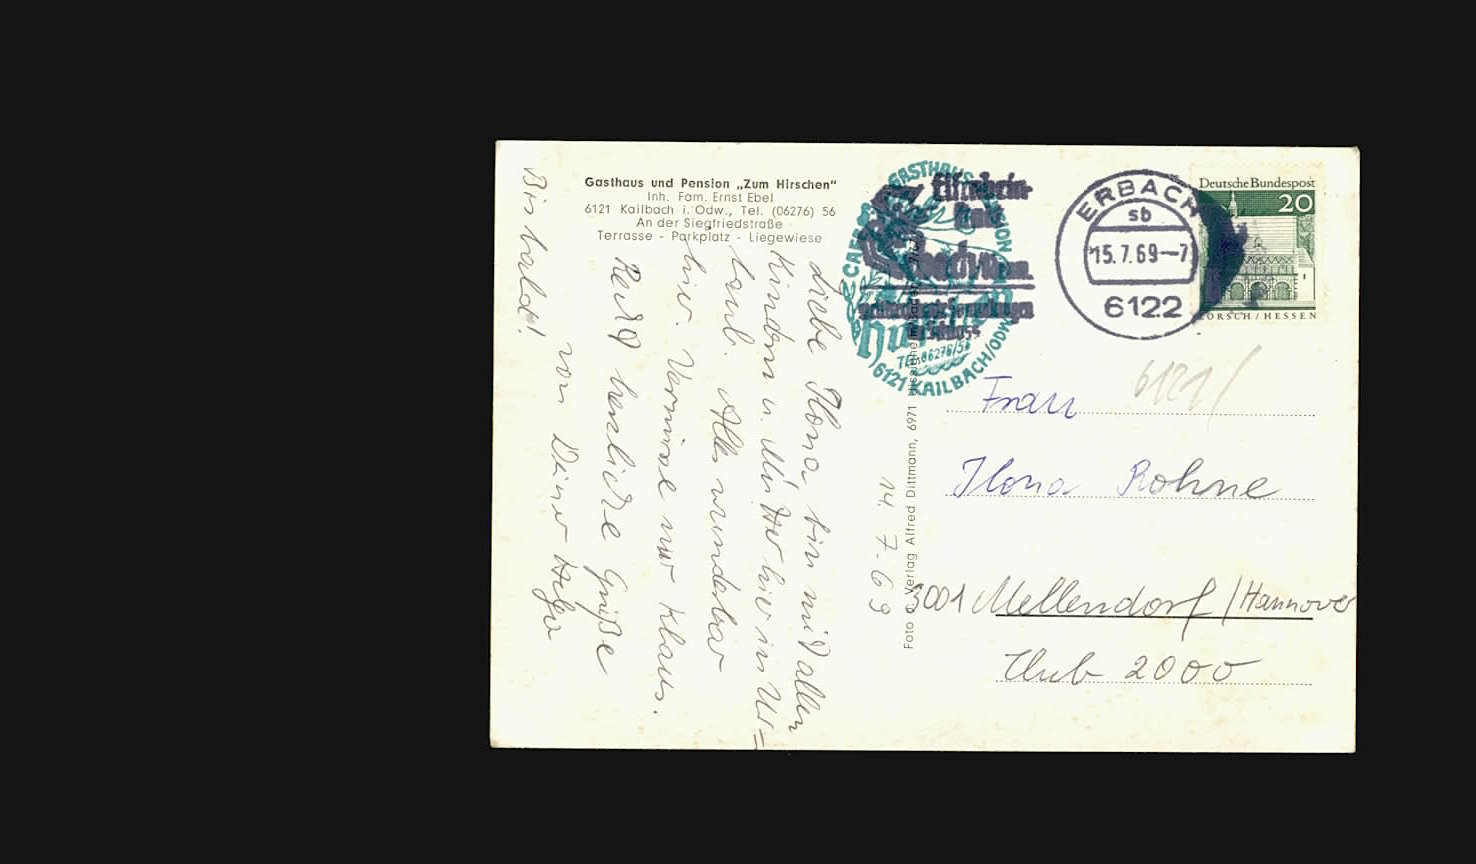 Gasthaus und Pension „Zum Hirschen“
Inh. Fam. Ernst Ebel
6121 Kailbach i. Odw., Tel. (06276) 56
An der Siegfriedstraße
Terrasse - Parkplatz - Liegewiese
Liebe Ilona bin mit allen
Kindern u. Mutter hier im Ur=
laub. Alles wunderbar
hier. Vermisse nur Klaus.
Recht herzliche Grüße
von Deiner Helga
Bis bald!
14. 7. 69
Foto u. Verlag Alfred Dittmann, 6971
CAFE GASTHAUS PENSION
Hirschen
TEL. 06276/56
6121 KAILBACH/ODW.
Elfenbein-
ERBACH
sb
15.7.69—7
6122
Deutsche Bundespost
20
LORSCH / HESSEN
6121/
Frau
Ilona Rohne
3001 Mellendorf / Hannover
Club 2000